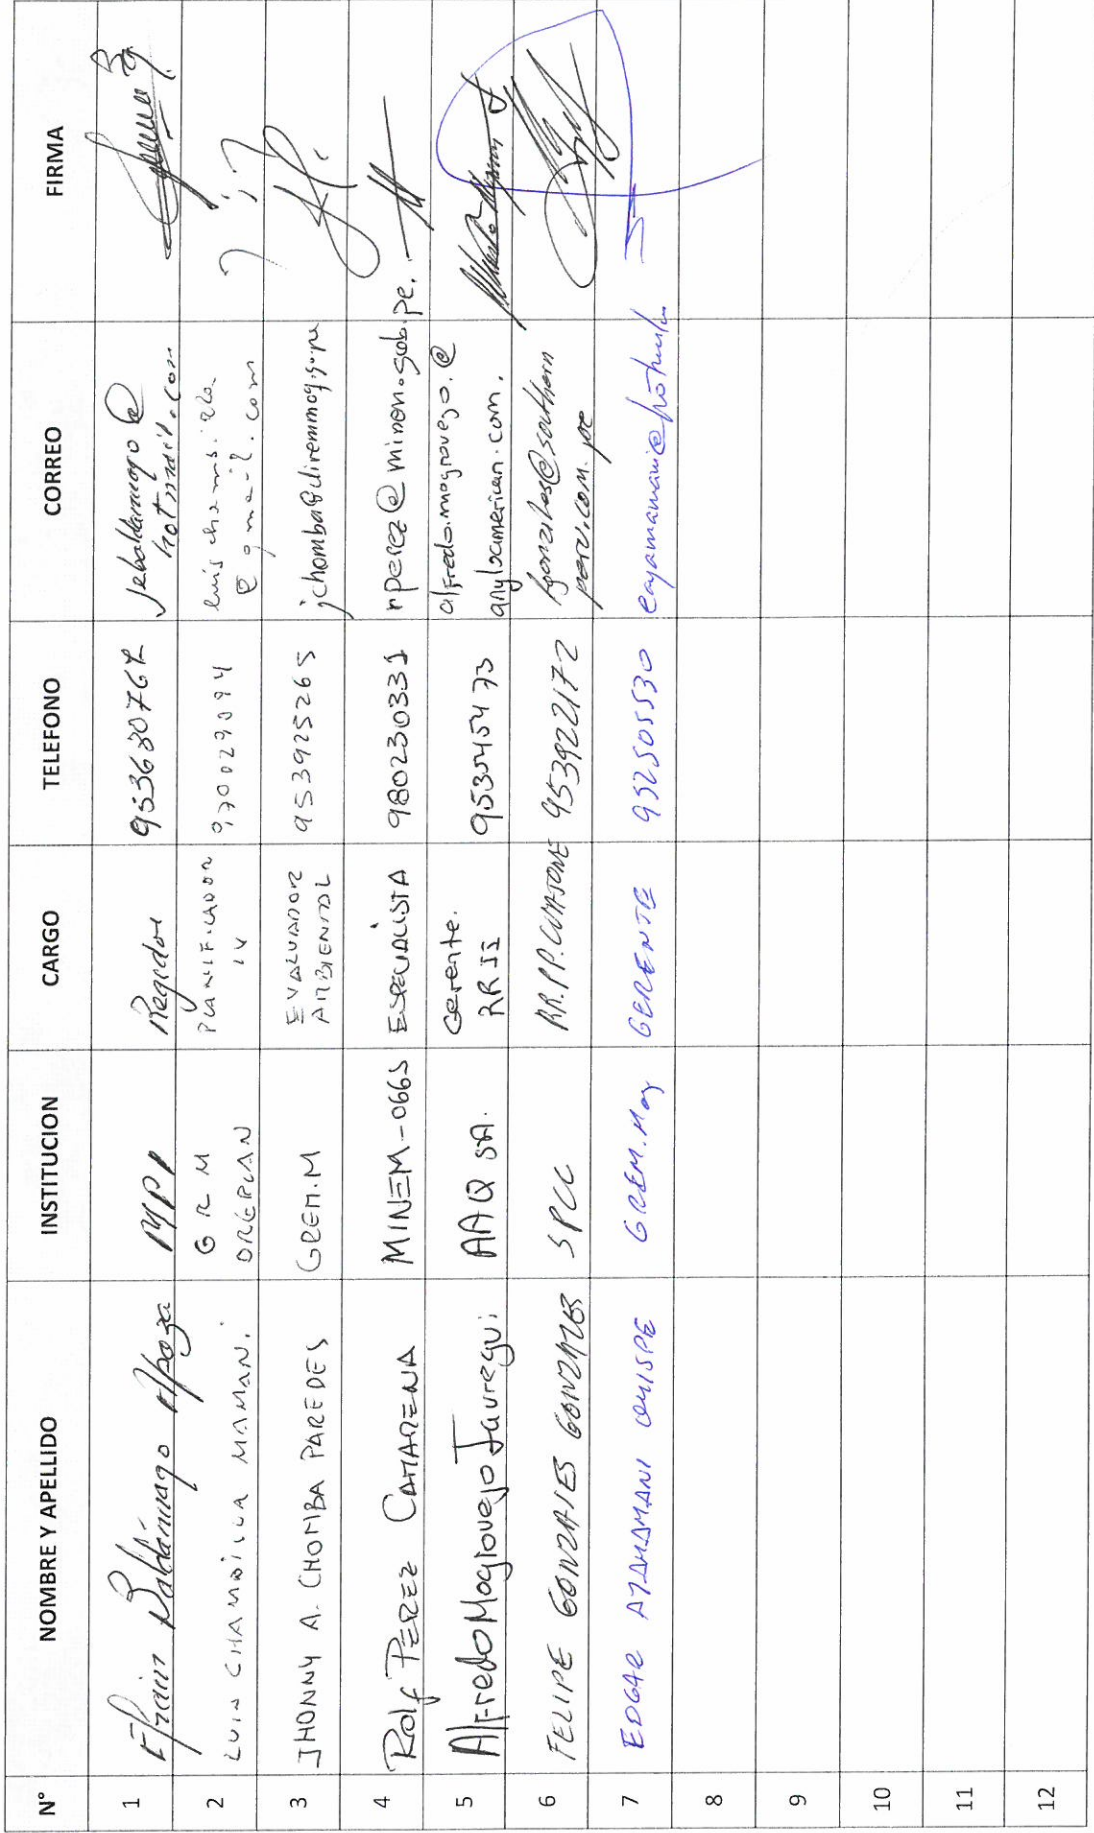 N° NOMBRE Y APELLIDO INSTITUCION CARGO TELEFONO CORREO FIRMA
1 Efrain Baldarrago Apaza MPI Regidor 953630767 jebaldarrago@
hotmail.com
2 LUIS CHAMBILLA MAMANI. GRM PLANIFICADOR 970029094 luis chambilla
OREPLAN IV @gmail.com
3 JHONNY A. CHOMBA PAREDES GREM.M EVALUADOR 953925265
AMBIENTAL
4 Rolf PEREZ CAMARENA MINEM-OGGS ESPECIALISTA 980230331 rperez@minem.gob.pe.
5 Alfredo Mogrovejo Jauregui AAQ SA. Gerente. 953545473 alfredo.mogrovejo.@
RRII angloamerican.com.
6 FELIPE GONZALES GONZALES SPCC RR.PP. CUAJONE 953922172 fgonzales@southern
peru.com.pe
7 EDGAR AYAMAMANI QUISPE GREM.Moq GERENTE 952505530
8
9
10
11
12